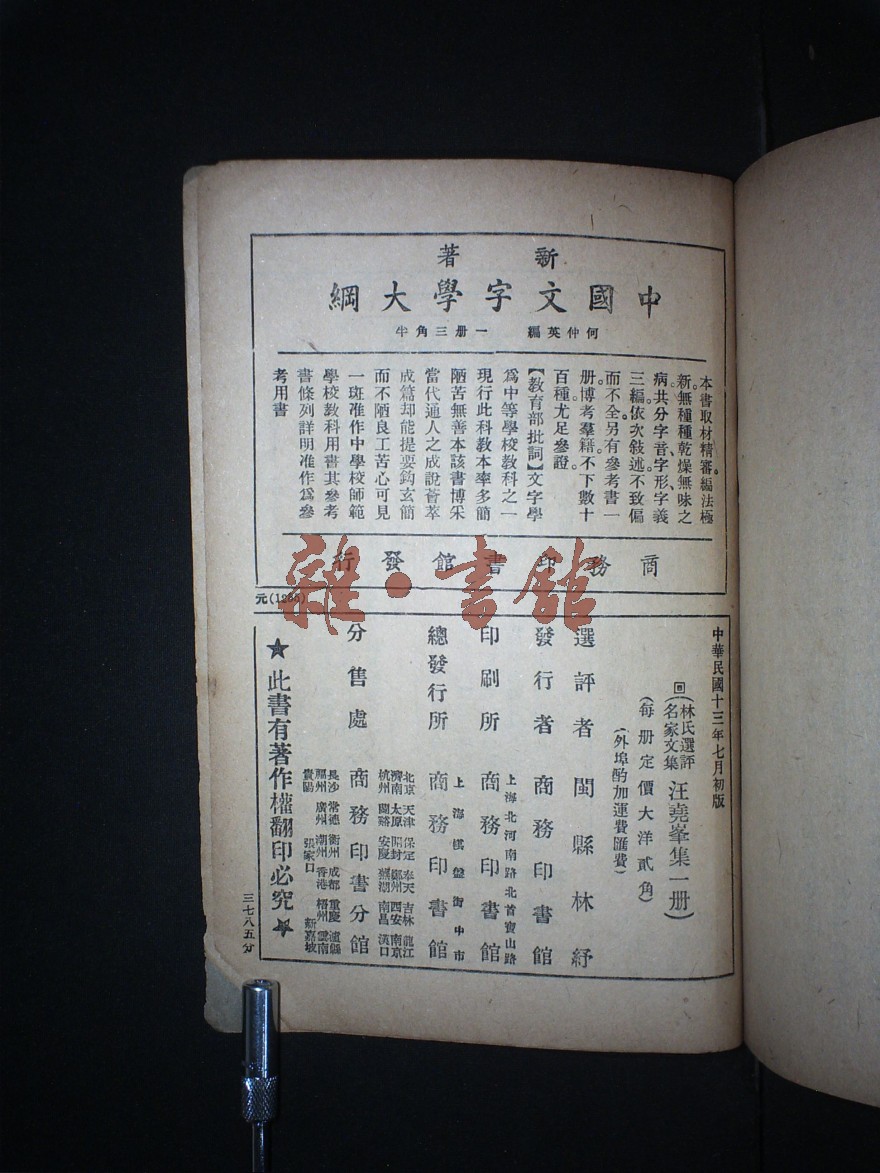 新著
中國文字學大綱
何仲英編 一册三角半
本書取材精審編法極
新。無種種乾燥無味之
病。共分字音、字形、字義
三編。依次敍述。不致偏
而不全。另有參考書一
册。博考羣籍。不下數十
百種。尤足參證
【教育部批詞】文字學
爲中等學校教科之一
現行此科教本率多簡
陋苦無善本該書博采
當代通人之成說薈萃
成篇却能提要鈎玄簡
而不陋良工苦心可見
一斑准作中學校師範
學校教科用書其參考
書條列詳明准作爲參
考用書
商務印書館發行
元(1286)
雜·書館
中華民國十三年七月初版
回(林氏選評名家文集 汪堯峯集一册)
(每册定價大洋貳角)
(外埠酌加運費匯費)
選評者 閩縣林紓
發行者 商務印書館
印刷所 上海北河南路北首寶山路 商務印書館
總發行所 上海棋盤街中市 商務印書館
分售處 商務印書分館
北京 天津 保定 奉天 吉林 龍江
濟南 太原 開封 鄭州 西安 南京
杭州 蘭谿 安慶 蕪湖 南昌 漢口
長沙 常德 衡州 成都 重慶 瀘縣
福州 廣州 潮州 香港 梧州 雲南
貴陽 張家口 新嘉坡
★此書有著作權翻印必究★
三七八五分